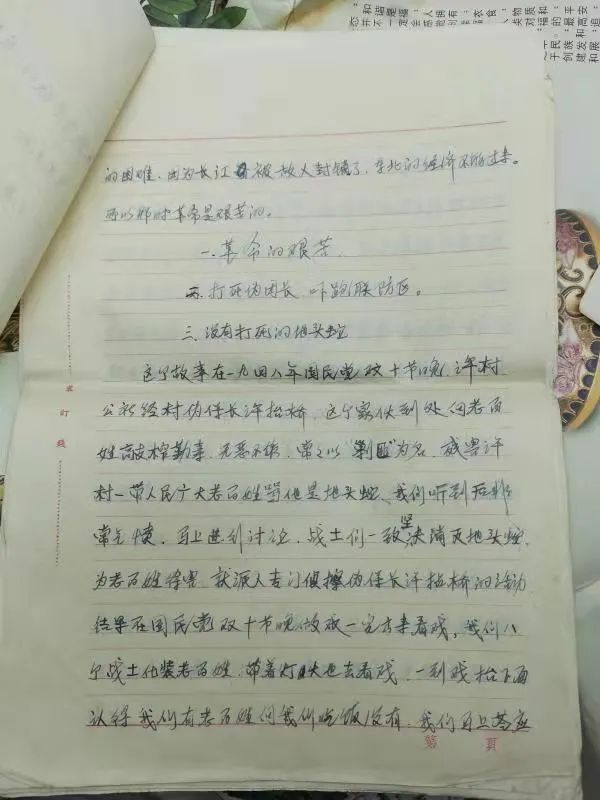 的困难，因为长江被敌人封锁了，东北的经济不能过来。
所以那时革命是艰苦的。
一.革命的艰苦.
打死伪团长，吓跑联防区。
三.没有打死的地头蛇
这个故事在一九四八年国民党双十节晚，村
公社经村伪保长桥，这个家伙到处向老百
姓敲榨勒索，无恶不作，常々以“剿匪”为名，威
村一带人民广大老百姓骂他是地头蛇，我们听到后非
常气愤，马上进行讨论，战士们一致坚决消灭地头蛇，
为老百姓除害，就派人专门侦察伪保长桥的活动
结果在国民党双十节晚做戏一定去来看戏，我们八
个战士化装老百姓，带着灯火也去看戏，一到戏台下面
认得我们有老百姓问我们吃饭没有，我们马上荅应
第 页
装订线